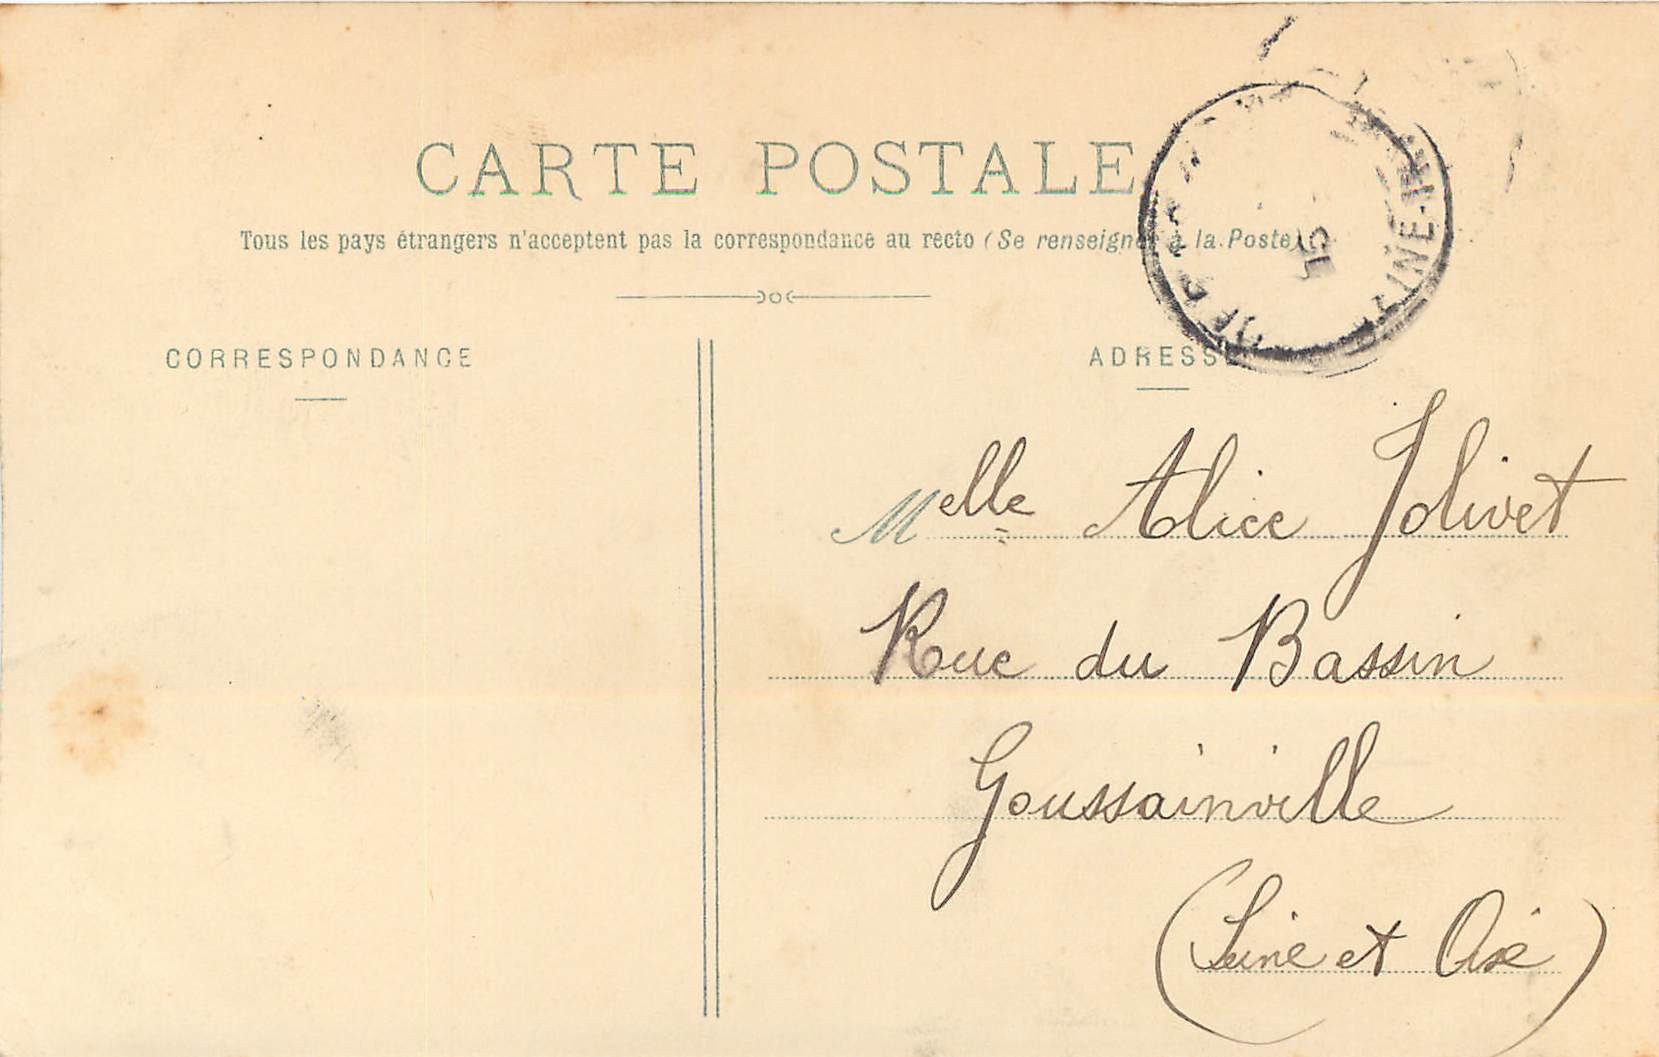 CARTE POSTALE
Tous les pays étrangers n'acceptent pas la correspondance au recto (Se renseigner à la Poste)
CORRESPONDANCE
ADRESSE
Melle Alice Jolivet
Rue du Bassin
Goussainville
(Seine et Oise)
15